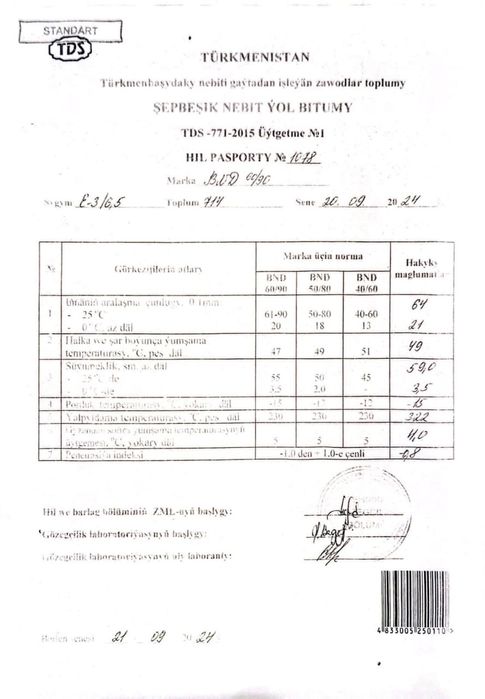 STANDART
TDS
TÜRKMENISTAN
Türkmenbaşydaky nebiti gaýtadan işleýän zawodlar toplumy
ŞEPBEŞIK NEBIT ÝOL BITUMY
TDS -771-2015 Üýtgetme №1
HIL PASPORTY № 1078
Marka BND 60/90
E-3/6,5 Toplum 714 Sene 20. 09 20 24
№ Görkezijileriň atlary Marka üçin norma Hakyky maglumatlar
BND 60/90 BND 50/80 BND 40/60
1 0,1mm 64
- 25°C 61-90 50-80 40-60
- 0°C, az däl 20 18 13 21
2 Halka we şar boýunça ýumşama
temperaturasy, °C, pes däl 47 49 51 49
3 Süýnmeklik, sm, az däl 59,0
- 25°C-de 55 50 45
3,5 2,0 - 3,5
4 temperaturasy, °C, ýokary däl -15 -12 -15
temperaturasy, °C, pes däl 230 230 230 322
temperaturasynyň
üýtgemesi, °C, ýokary däl 5 5 5 4,0
7 Penetrasiýa indeksi -1.0 den + 1.0-e çenli -0,8
Hil we barlag bölüminiň ZML-nyň başlygy:
Gözegçilik laboratoriýasynyň başlygy:
Gözegçilik laboratoriýasynyň uly laboranty:
Berlen senesi 21 09 20 24
4 833005 250110